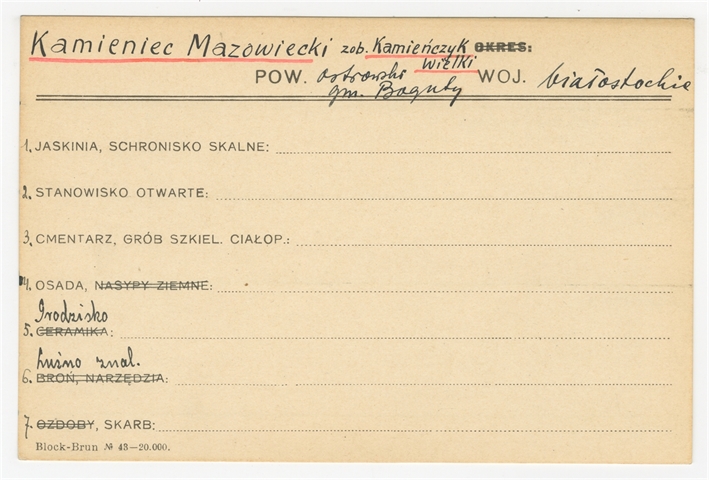 Kamieniec Mazowiecki zob. Kamieńczyk OKRES:
Wielki
POW. ostrowski WOJ. białostockie
gm. Boguty
1. JASKINIA, SCHRONISKO SKALNE:
2. STANOWISKO OTWARTE:
3. CMENTARZ, GRÓB SZKIEL. CIAŁOP.:
4. OSADA, NASYPY ZIEMNE:
Grodzisko
5. CERAMIKA:
Luźno znal.
6. BROŃ, NARZĘDZIA:
7. OZDOBY, SKARB:
Block-Brun № 43—20.000.